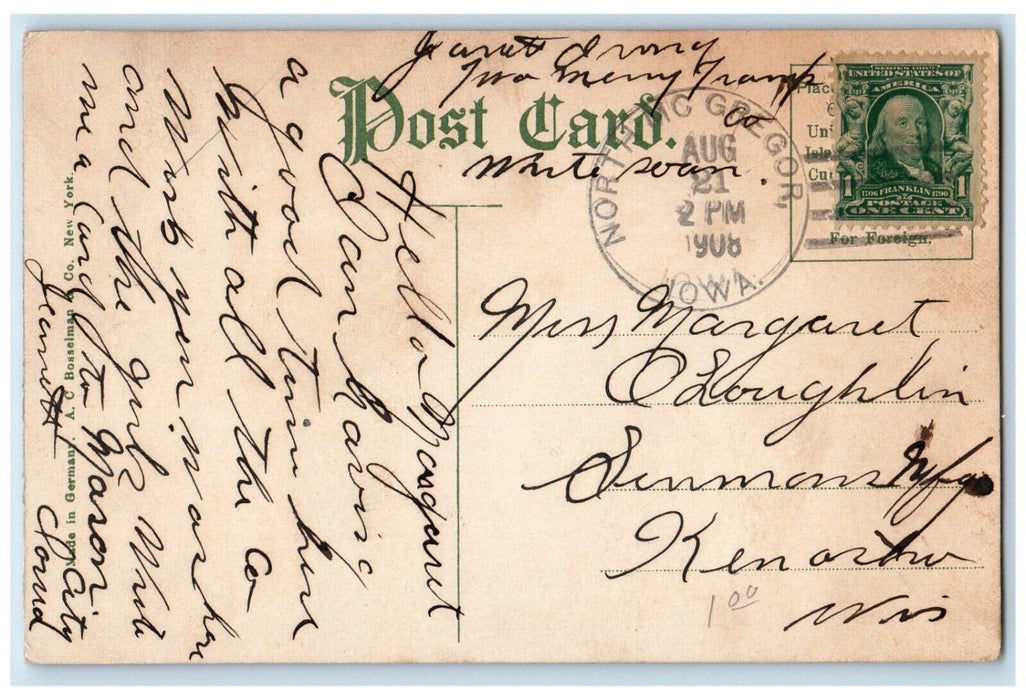 Two Merry Tramp
Co
White swan.
Post Card.
NORTH MC GREGOR,
AUG
21
2 PM
1908
IOWA.
SERIES 1902
UNITED STATES OF
AMERICA
1 1706 FRANKLIN 1790 1
POSTAGE
ONE CENT
Place
Uni
Isla
Cu
For Foreign.
Miss Margaret
O'Loughlin
Simmons Mfg
Kenosha
Wis
1 00
Hello Margaret
I am having
a good time here
with all the Co
Wish you was here
and the girls Write
me a Card to Mason City
Jeanett Iowa
Made in Germany. A. C. Bosselman & Co. New York.